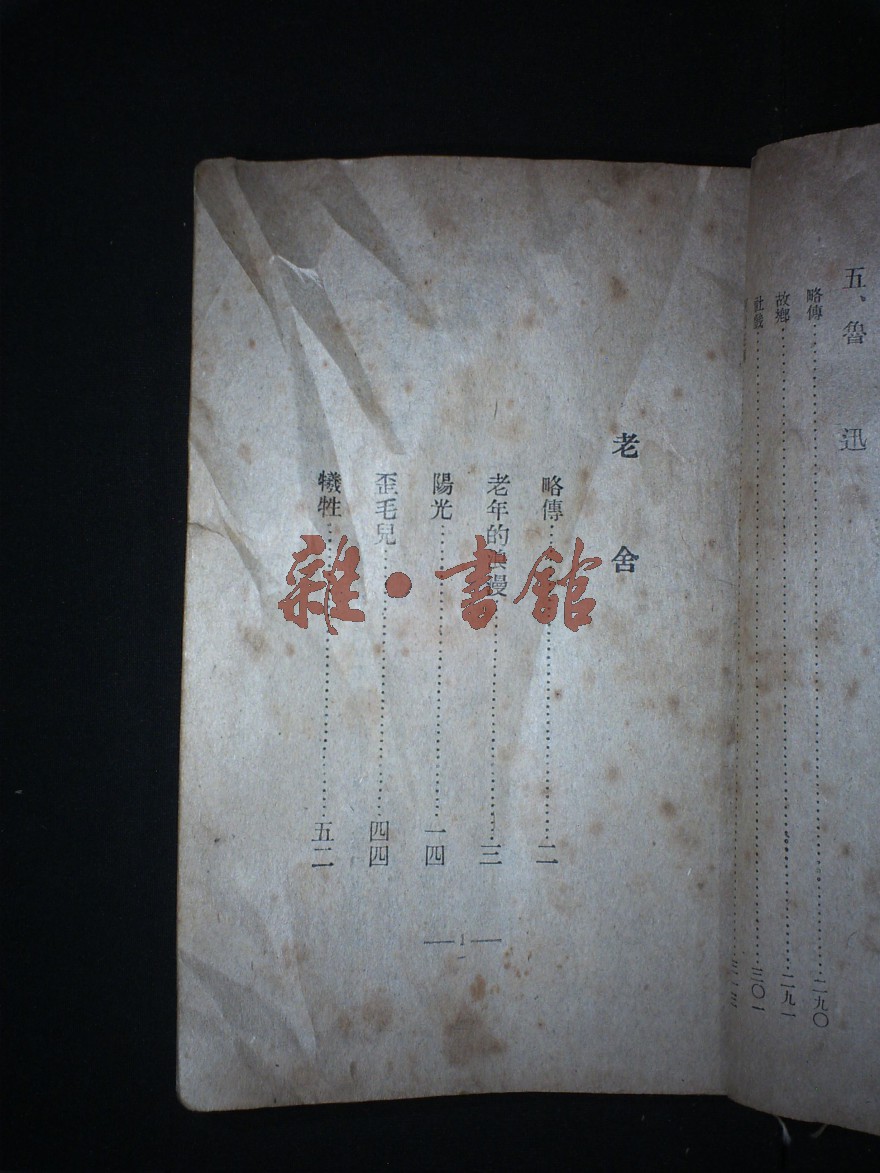 五、魯迅
略傳……二九〇
故鄉……二九一
社戲……三〇一
老舍
略傳……二
老年的浪漫……三
陽光……一四
歪毛兒……四四
犧牲……五二
—1—
雜·書館